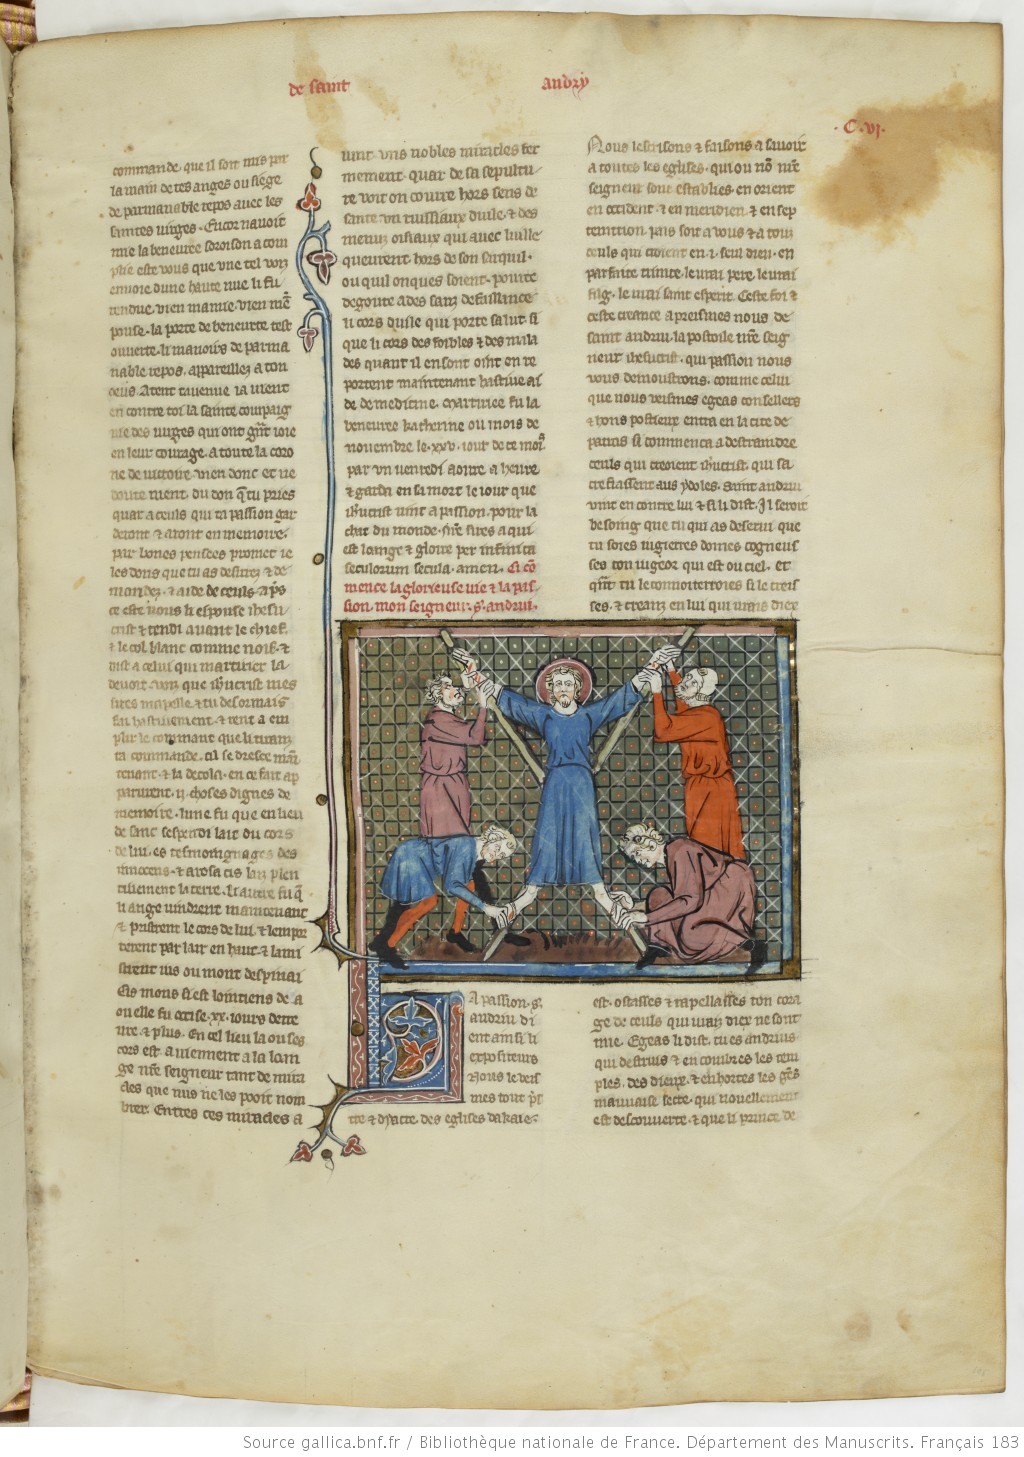 de saint andry
.C.vj.
commande. que il soit mis par
la main de tes angres ou siege
de parmanable repos avec les
saintes virges. Encor navoit
mie la beneuree soroison acom
plie este vous que une tel voiz
envoie dune haute nue li fu
rendue. vien mamie. vien mē
pouse. la porte de beneurte test
ouverte. li manoirs de parma
nable repos. appareillez a ton
oeus. Atent ta venue. ia vient
en contre toi la sainte compaig
nie des virges qui ont gāt ioie
en leur courage. a toute la coro
ne de victoire. vien donc et ne
doute nient. du don q̄ tu pries
quar a ceuls qui ta passion gar
deront & aront en memoire.
par bones pensees promet ie
les dons que tu as desirez & de
mandez. & aide de ceuls. apͣs
ce este vous li espouse ihesu
crist & tendi avant le chief.
& le col blanc comme noif. &
dist a celui qui martirier la
devoit. voiz que ihūcrist mes
sires mapelle. & tu desormais
fai hastivement. & tent a em
plir le commant que li tiranz
ta commande. cil se dresce main
tenant. & la decola. en ce fait ap
parurent .ij. choses dignes de
memoire. lune fu que en lieu
de sanc sespendi lait du cors
de lui. es tesmoignages des
innocens. & arosa cis laiz plen
tivement la terre. li autre fu q̄
li ange vindrent maintenant
& pristrent le cors de lui. & lempor
terent par lair en haut. & lami
strent ius ou mont de synai
Cis mons si est lointiens de a
ou elle fu occise .xx. iours dette
ure. & plus. En cel lieu la ou ses
cors est. aviennent a la loan
ge nr̄e seigneur tant de mira
cles que nus ne les pooit nom
brer. Entres ces miracles a
vint uns nobles miracles fer
mement. quar de sa sepultu
re voit on courre hors sens de
sante un ruissiaux duile. & des
menuz oisiaux qui avec luille
queurent. hors de son sarquil.
ou quil onques soient. pource
degoute ades sanz defaillance
li cors duile qui porte salut. si
que li cors des foibles & des mala
des quant il en sont oint en re
portent maintenant hastive ai
de de medicine. Martirice fu la
beneuree katherine ou mois de
novembre le .xxv. iour de ce moiˢ
par un venredi a ore a heure
& garda en sa mort le iour que
ihūcrist vint a passion. pour la
char du monde. nr̄e sires a qui
est loange & gloire per infinita
seculorum secula. amen. Ci cō
mence la glorieuse vie & la pas
sion. mon seigneur. s. andrui.
La passion. s.
andriu di
ent ainsi li
expositeurs
Nous le veis
mes tout pre
tre & dyacre. des eglises dakaie.
Nous lescrisons & faisons a savoir
a toutes les eglises. qui ou nō nr̄e
seigneur sont establies. en orient
en occident. & en meridien. & en sep
tentrion. pais soit a vous & a touz
ceuls qui croient en .j. seul dieu. en
parfaite trinite. le vrai pere. le vrai
filz. le vrai saint esperit. Ceste foi &
ceste creance apreismes nous de
saint andriu. lapostoile nr̄e seig
neur ihesucrist. qui passion nous
vous demoustrons. comme celui
que nous veismes egeas conselliers
& bons postieux entra en la cite de
patras si commenca a destraindre
ceuls qui creoient ihūcrist. qui sa
crefiassent aus ydoles. Saint andriu
vint en contre lui & si li dist. Il seroit
besoing que tu qui as deservi que
tu soies iugierres domes cogneus
ses ton iugeor qui est ou ciel. et
quāt tu le connoisteroies si le creis
ses. & creanz en lui qui vrais diex
est. ostasses & rapellasses ton cora
ge de ceuls qui vraiz diex ne sont
mie. Egeas li dist. tu es andrius
qui destruis & encombres les tem
ples. des dieux. & enhortes les gēs
mauvaise secte. qui nouvellement
est descouverte. & que li prince de
Source gallica.bnf.fr / Bibliothèque nationale de France. Département des Manuscrits. Français 183